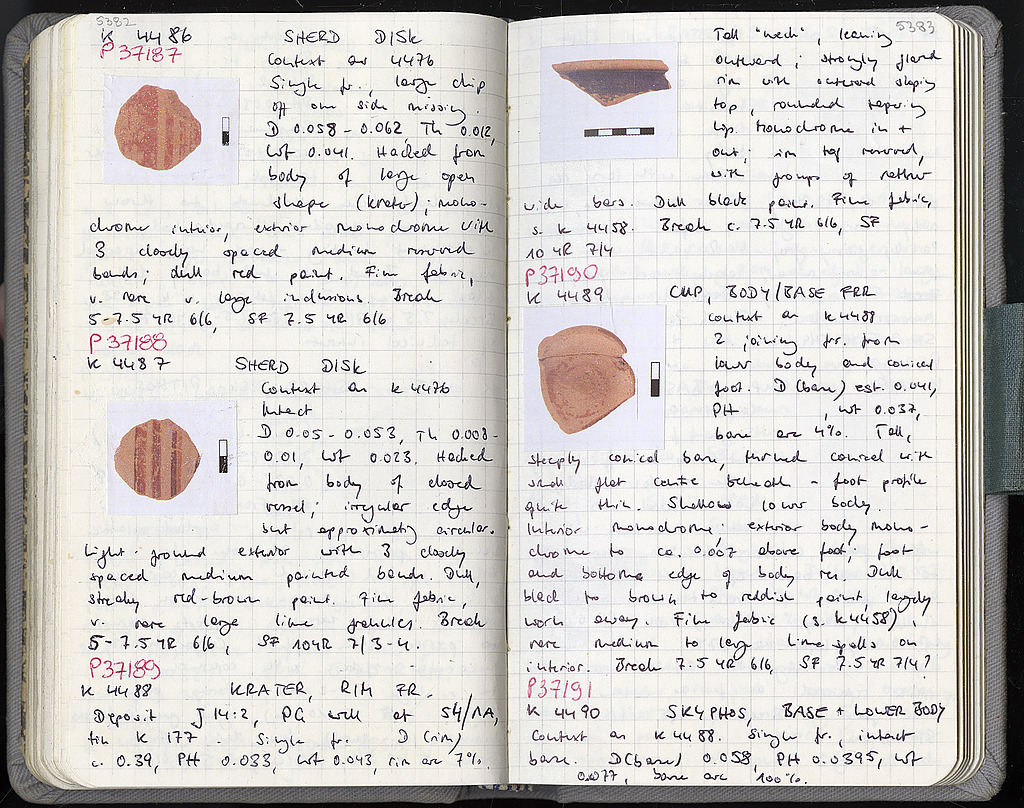 5382
K 4486 SHERD DISK
P 37187
Context as 4476
Single fr., large chip
off one side missing.
D 0.058-0.062, Th 0.012,
Wt 0.041. Hacked from
body of large open
shape (krater); mono-
chrome interior, exterior monochrome with
3 closely spaced medium reserved
bands; dull red paint. Fine fabric,
v. rare v. large inclusions. Break
5-7.5 YR 6/6, SF 7.5 YR 6/6
P 37188
K 4487 SHERD DISK
Context as K 4476
Intact
D 0.05-0.053, Th 0.008-
0.01, Wt 0.023. Hacked
from body of closed
vessel; irregular edge
but approximately circular.
Light-ground exterior with 3 closely
spaced medium painted bands. Dull,
streaky red-brown paint. Fine fabric,
v. rare large lime granules. Break
5-7.5 YR 6/6, SF 10YR 7/3-4.
P37189
K 4488 KRATER, RIM FR.
Deposit J 14:2, PG well at 54/ΛA,
tin K 177. Single fr. D (rim)
c. 0.39, PH 0.033, Wt 0.043, rim arc 7%.
5383
Tall "neck", leaning
outward; strongly flared
rim with outward sloping
top, rounded tapering
lip. Monochrome in +
out; rim top reserved,
with groups of rather
wide bars. Dull black paint. Fine fabric,
s. K 4458. Break c. 7.5 YR 6/6, SF
10 YR 7/4
P37190
K 4489 CUP, BODY/BASE FRR
Context as K 4488
2 joining frr. from
lower body and conical
foot. D (base) est. 0.041,
PH , wt 0.037,
base arc 4%. Tall,
steeply conical base, turned conical with
small flat centre beneath - foot profile
quite thin. Shallow lower body.
Interior monochrome; exterior body mono-
chrome to ca. 0.007 above foot; foot
and bottommost edge of body res. Dull
black to brown to reddish paint, largely
worn away. Fine fabric (s. K 4458),
rare medium to large lime spalls on
interior. Break 7.5 YR 6/6, SF 7.5 YR 7/4?
P37191
K 4490 SKYPHOS, BASE + LOWER BODY
Context as K 4488. Single fr., intact
base. D(base) 0.058, PH 0.0395, WT
0.077, base arc 100%.